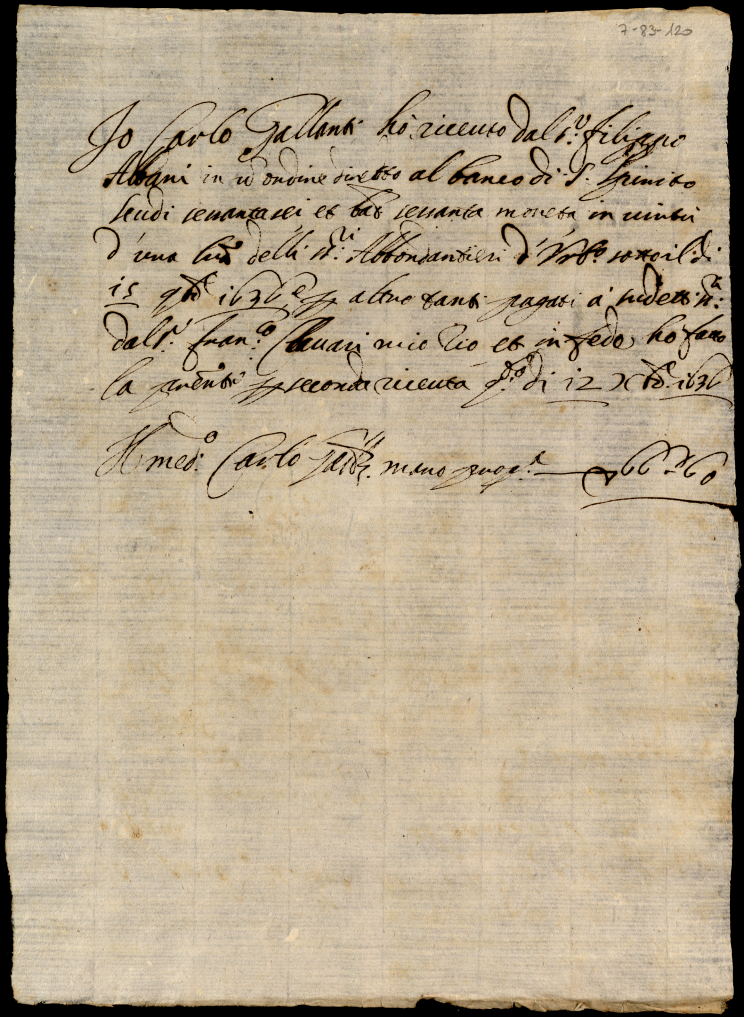 7-83-120
Io Carlo Gallanti hò riceuto dal sr. filippo
Albani in un ordine diretto al banco di S. Spirito
scudi sessantasei et bai sessanta moneta in uirtù
d'una lra delli ssri. Abbondantieri d'Urbo. sotto il di
15 9bre 1636 e p altre tanti pagati a sudetti ssri.
dal sr. franco. Clauari mio Zio et in fede ho fatto
la presente p seconda riceuta qo. di di 12 Xbre 1636
Il medo. Carlo Gallti. mano propa. 66 60